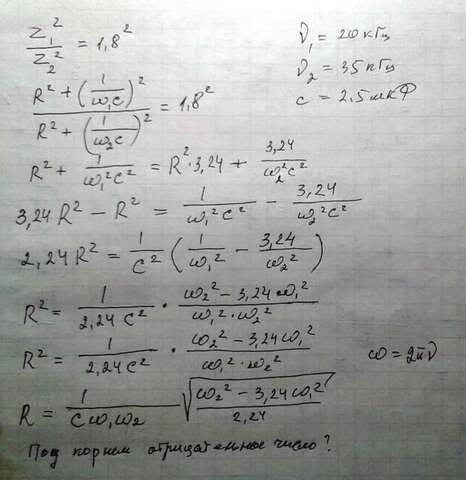 Z₁² / Z₂² = 1,8²
ν₁ = 20 кГц
ν₂ = 35 кГц
c = 2,5 мкФ
(R² + (1/(ω₁c))²) / (R² + (1/(ω₂c))²) = 1,8²
R² + 1/(ω₁²c²) = R²·3,24 + 3,24/(ω₂²c²)
3,24 R² − R² = 1/(ω₁²c²) − 3,24/(ω₂²c²)
2,24 R² = 1/c² (1/ω₁² − 3,24/ω₂²)
R² = 1/(2,24 c²) · (ω₂² − 3,24ω₁²)/(ω₁²·ω₂²)
R² = 1/(2,24 c²) · (ω₂² − 3,24ω₁²)/(ω₁²·ω₂²)
ω = 2πν
R = 1/(cω₁ω₂) √((ω₂² − 3,24ω₁²)/2,24)
Под корнем отрицательное число?